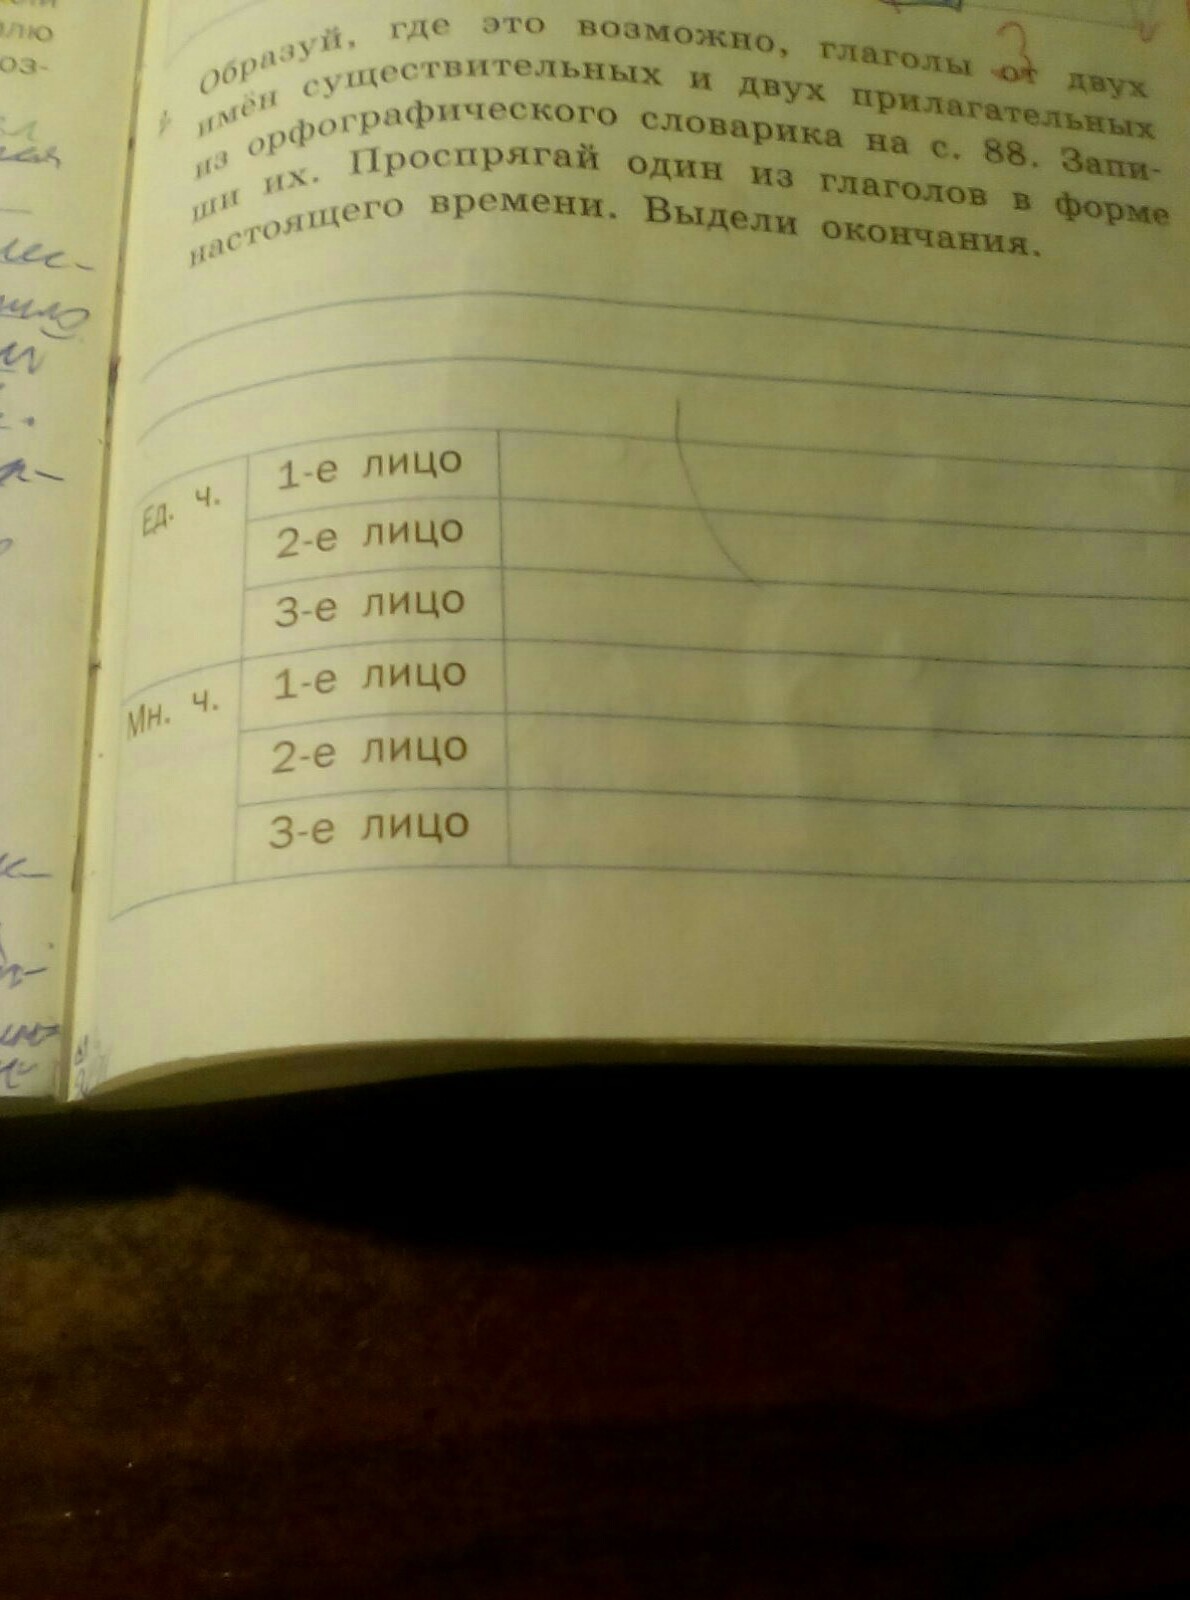 Образуй, где это возможно, глаголы от двух
имён существительных и двух прилагательных
из орфографического словарика на с. 88. Запи-
ши их. Проспрягай один из глаголов в форме
настоящего времени. Выдели окончания.
Ед. ч.
1-е лицо
2-е лицо
3-е лицо
Мн. ч.
1-е лицо
2-е лицо
3-е лицо